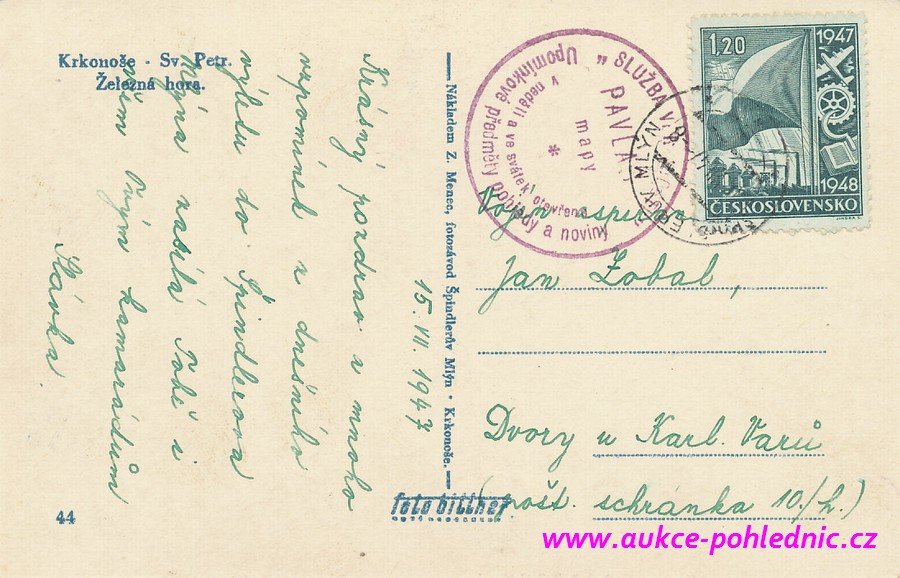 Krkonoše - Sv. Petr.
Železná hora.
Krásný pozdrav a mnoho
vzpomínek z dnešního
výletu do Špindlerova
Mlýna nasílá Tobě i
všem Tvým kamarádům
Slávka
15. VII. 1947
44
Nákladem Z. Menec, fotozávod Špindlerův Mlýn - Krkonoše.
" SLUŽBA V
PAVLA
mapy
*
v neděli a ve svátek otevřeno
Upomínkové předměty pohledy a noviny
MLÝN
1,20
1947
1948
ČESKOSLOVENSKO
Vojín aspirant
Jan Zobal,
Dvory u Karl. Varů
(pošt. schránka 10./h.)
www.aukce-pohlednic.cz